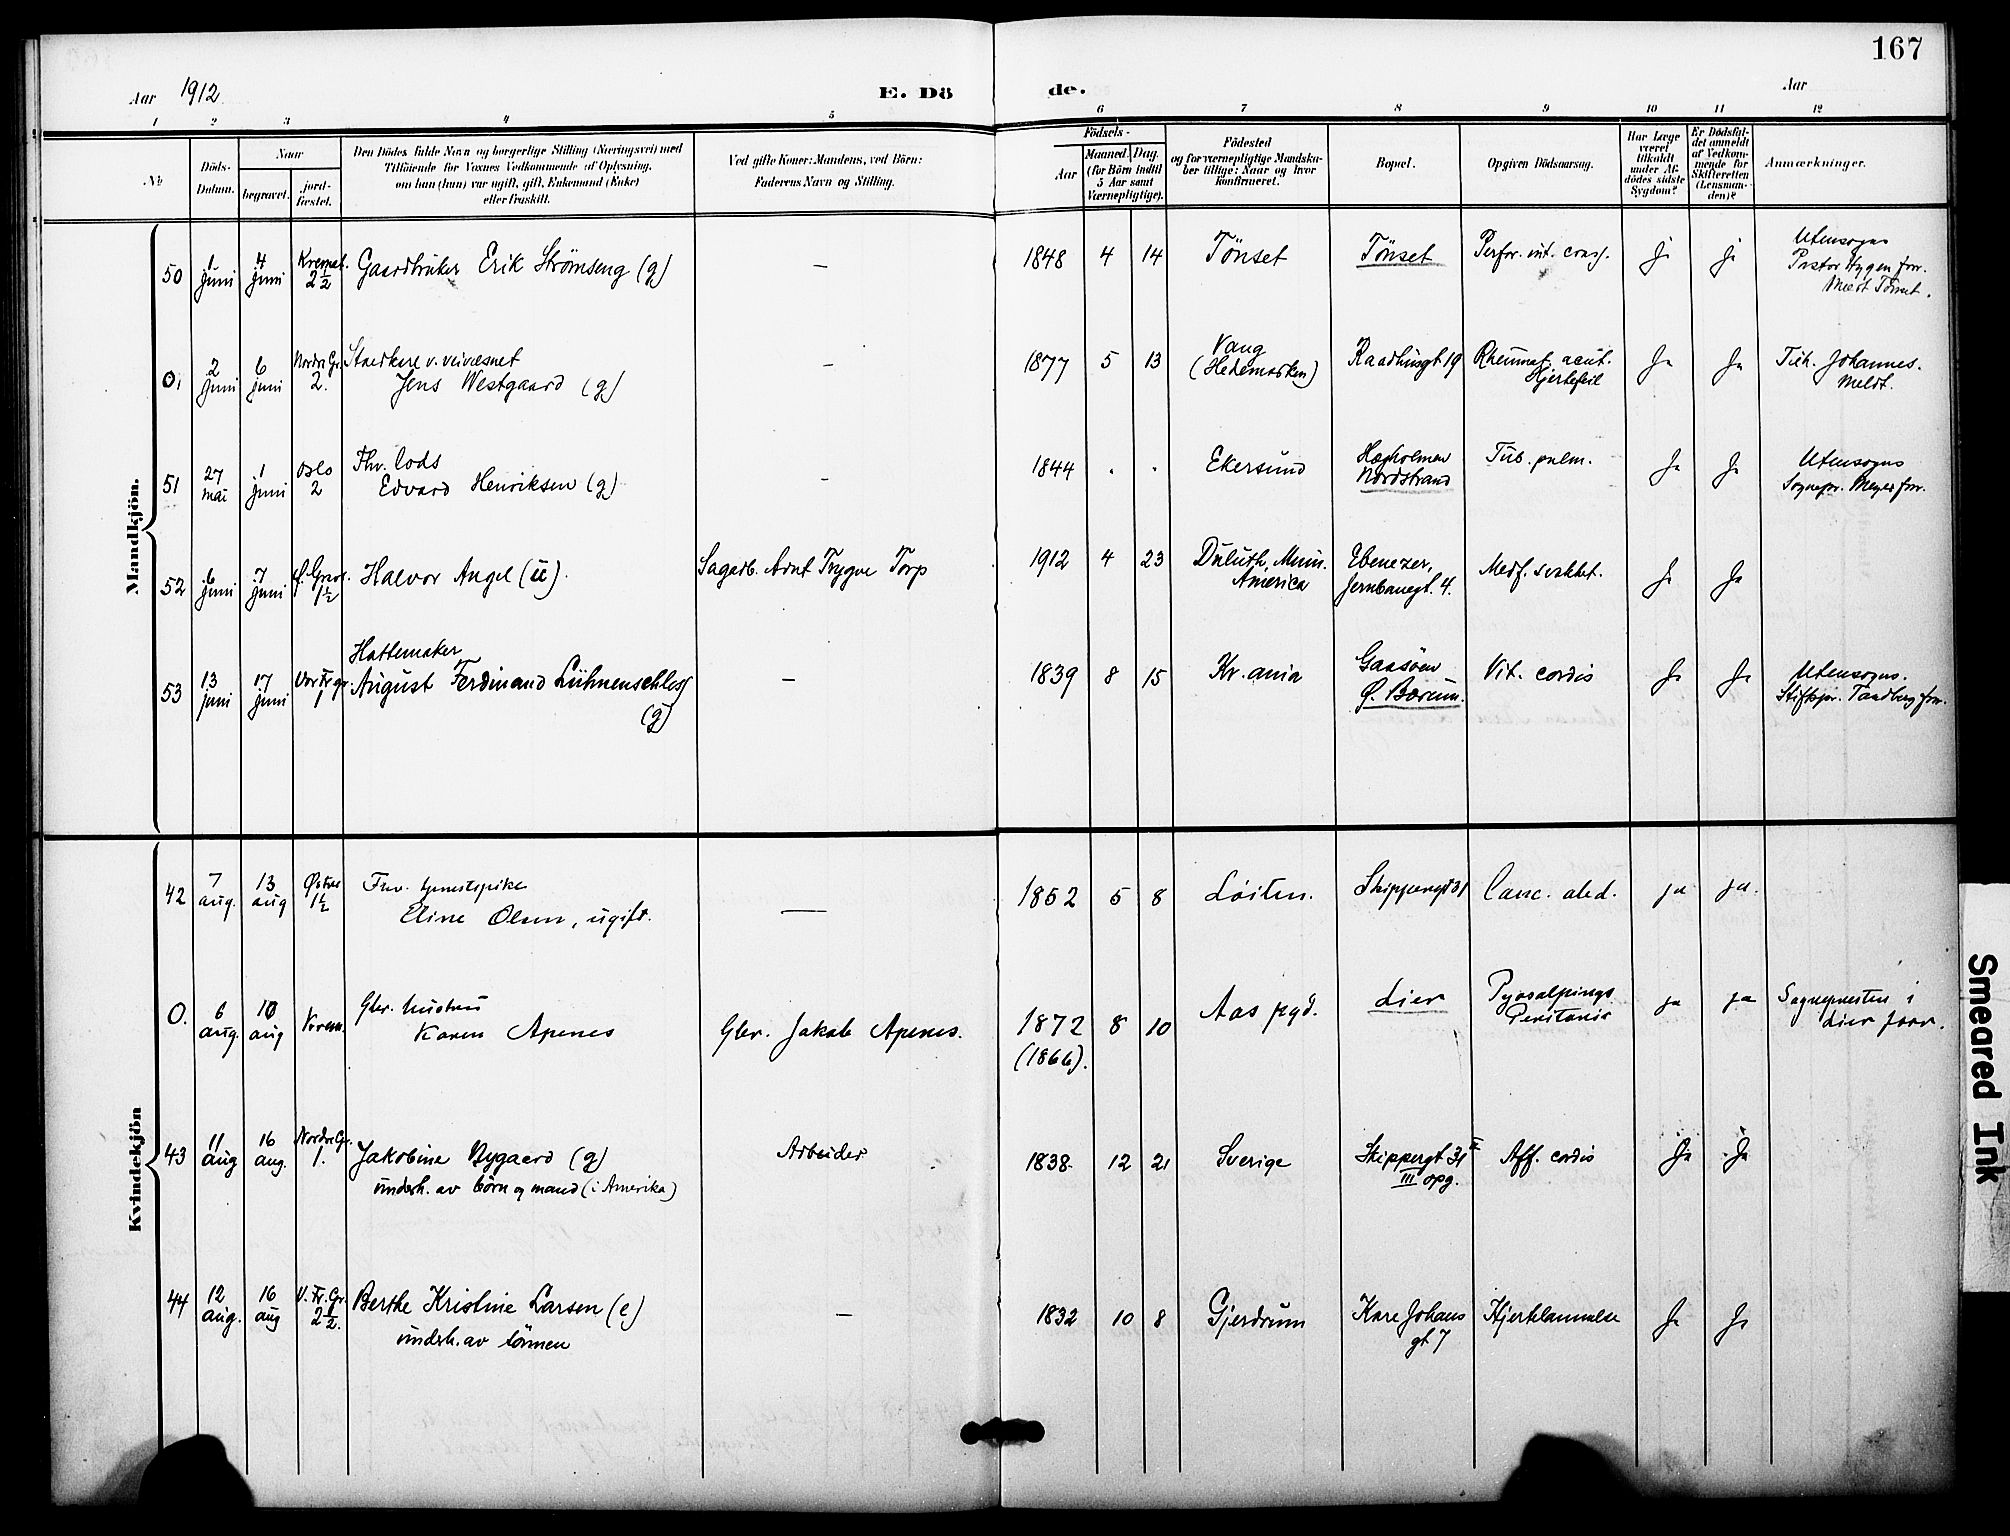 167
Aar 1912 E. Dö de. Aar
1 2 3 4 5 6 7 8 9 10 11 12
No
Döds-Datum.
Naar
begravet.
jord-fæstet.
Den Dödes fulde Navn og borgerlige Stilling (Næringsvei) med
Tilföiende for Voxnes Vedkommende af Oplysning,
om han (hun) var ugift, gift, Enkemand (Enke)
eller fraskilt.
Ved gifte Koner: Mandens, ved Börn:
Faderens Navn og Stilling.
Födsels-
Aar
Maaned. Dag.
(for Börn indtil
5 Aar samt
Værnepligtige).
Födested
og for værnepligtige Mandska-
ber tillige: Naar og hvor
konfirmeret.
Bopæl.
Opgiven Dödsaarsag.
Har Læge
været
tilkaldt
under Af-
dödes sidste
Sygdom?
Er Dödsfal-
det anmeldt
af Vedkom-
mende for
Skifteretten
(Lensman-
den)?
Anmærkninger.
Mandkjön.
50 1 juni 4 juni Kremat. 2½ Gaardbruker Erik Strömseng (g) — 1848 4 14 Tönset Tönset Perfor. int. Ja Ja Utensogns
Pastor Hygen forr.
Meldt Tönset.
0. 2 juni 6 juni Nordre Gr. 2. v. veivæsnet
Jens Westgaard (g) — 1877 5 13 Vang
(Hedemarken) Raadhusgt 19 Rheumat. acut.
Hjertefeil Ja Ja Johannes.
Meldt.
51 27 mai 1 juni Oslo 2 Fhv. Lods
Edvard Henriksen (g) — 1844 . . Ekersund Hægholmen
Nordstrand Tub. pulm. Ja Ja Utensogns
Sognepr. Meyer forr.
52 6 juni 7 juni 1½ Halvor Angel (u). Sagarb. Arnt Trygve Torp 1912 4 23 Duluth, Minn.
America Ebenezer,
Jernbanegt. 4. Medf. svakhet. Ja Ja
53 13 juni 17 juni Vor Fr. gr. 1 Hattemaker
August Ferdinand Lühnenschloss
(g) — 1839 8 15 Kr.ania Gaasöen
Ø. Bærum. Vit. cordis Ja Ja Utensogns.
Stiftspr. Tandberg forr.
Kvindekjön
42 7 aug. 13 aug Östre 1½ Fhv. tjenestepike
Eline Olsen, ugift. — 1852 5 8 Löiten. Skippergt 31 Canc. abd. ja ja.
0. 6 aug. 10 aug Krem. Gbr. hustru
Karen Apenes Gbr. Jakob Apenes. 1872
(1866). 8 10 Aas pgd. Lier Pyosalpings
Peritonit ja ja Sognepresten i
Lier forr.
43 11 aug 16 aug. Nordre Gr. 1. Jakobine Bygaard (g)
underh. av börn og mand (i Amerika) Arbeider 1838. 12 21 Sverige Skippergt 31 II
III opg. Aff. cordis Ja Ja
44 12 aug. 16 aug V. Fr. Gr. 2½. Berthe Kristine Larsen (e)
underh. av sönnen — 1832 10 8 Gjerdrum Karl Johans
gt 7 Hjertelammelse Ja Ja
Smeared Ink